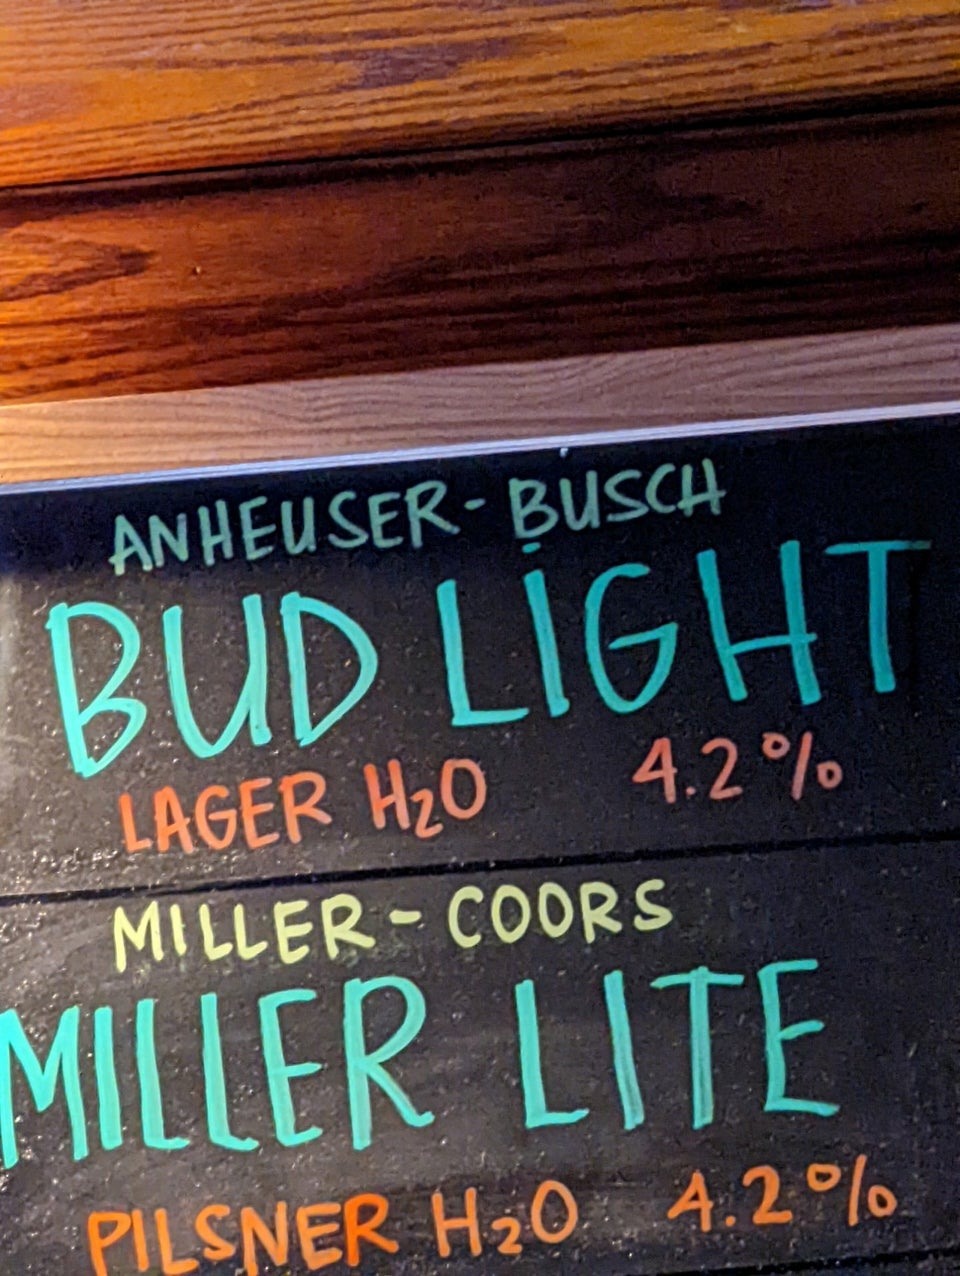 ANHEUSER-BUSCH
BUD LIGHT
LAGER H₂O 4.2%
MILLER-COORS
MILLER LITE
PILSNER H₂O 4.2%